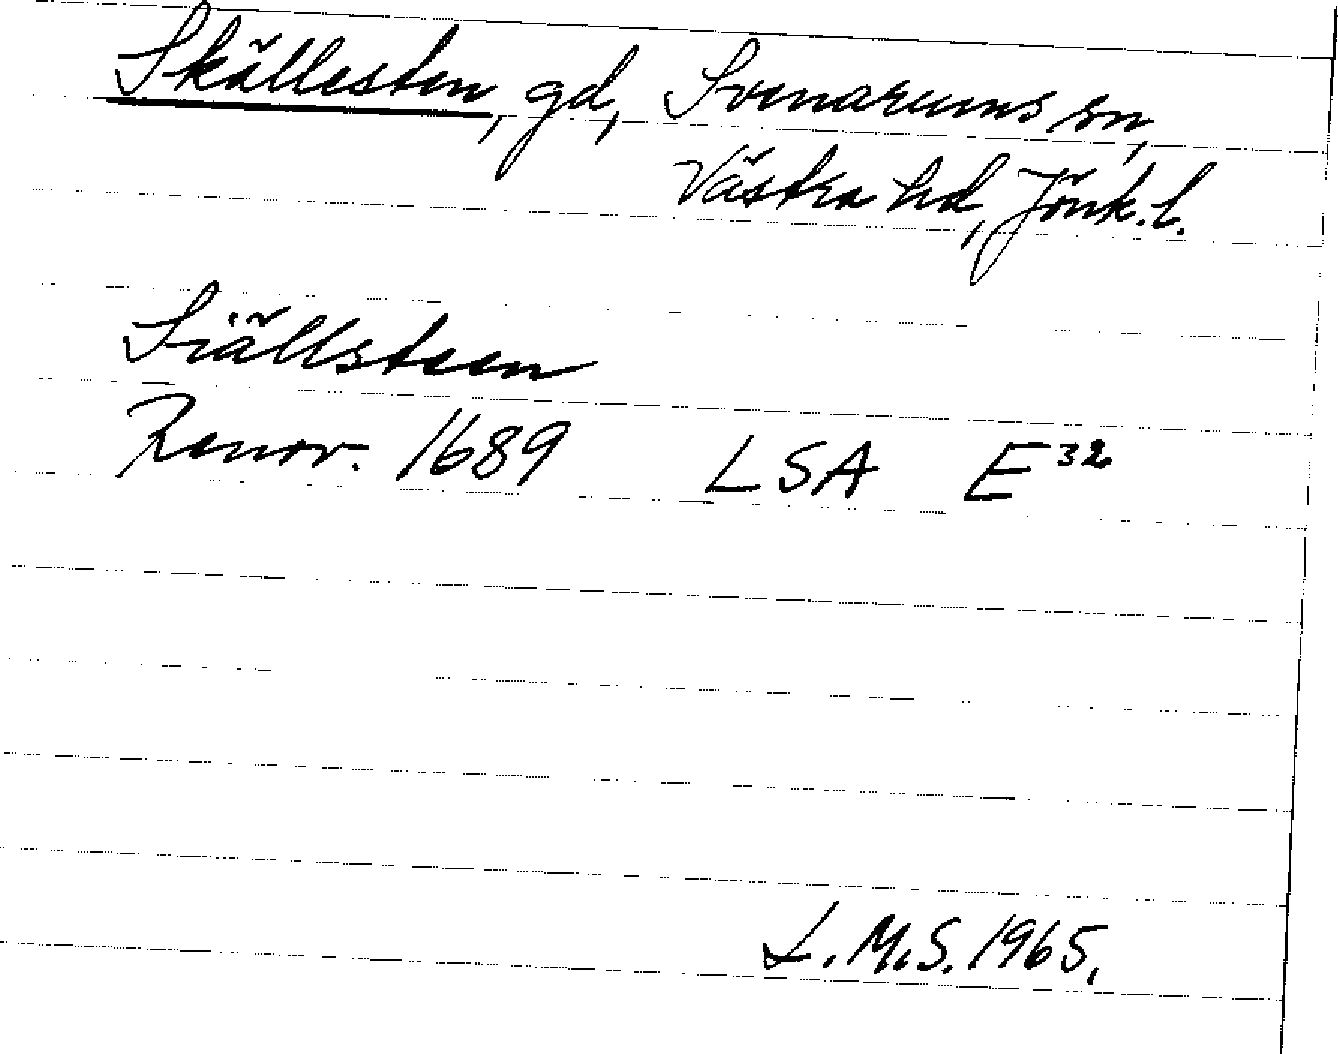 Skällesten, gd, Svenarums sn,
Västra hd, Jönk. l.
Siällsteen
Renov. 1689 LSA E32
L.M.S. 1965.